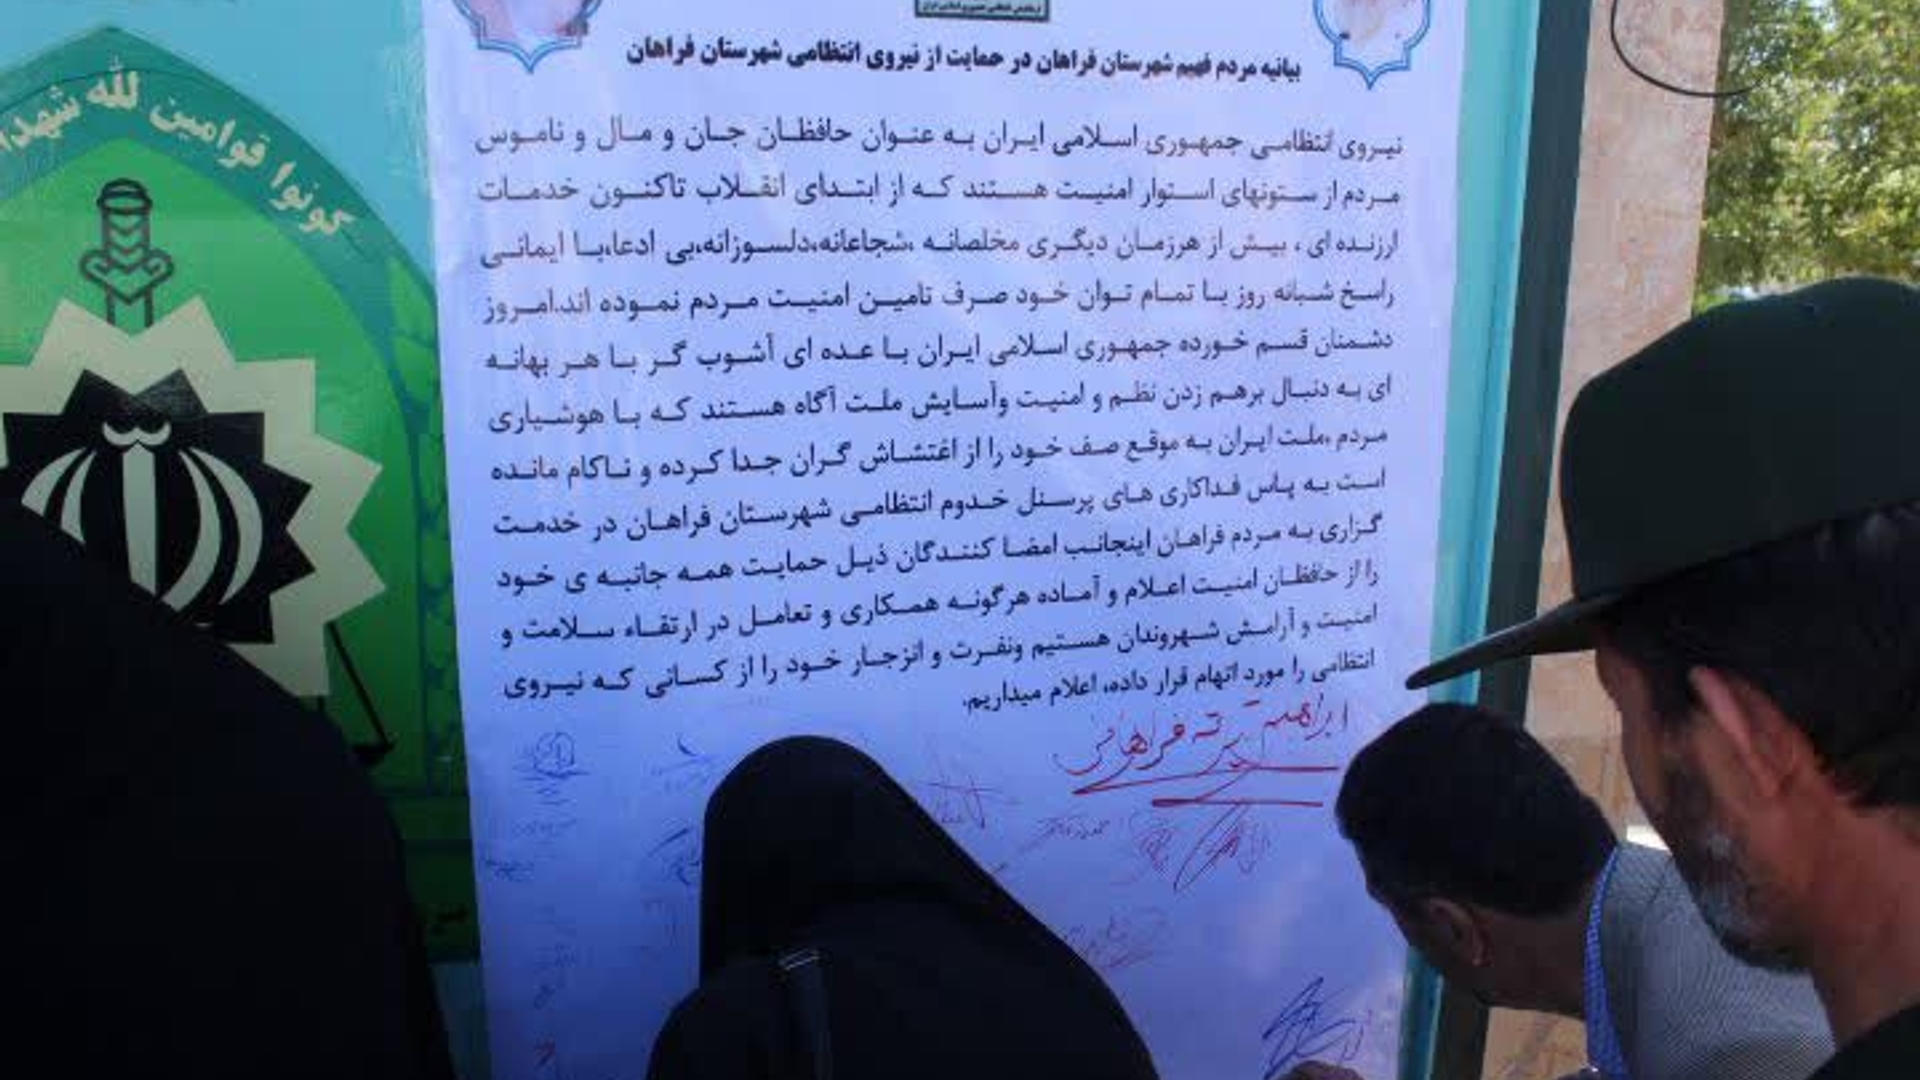 کونوا قوامین لله شهدا
بیانیه مردم فهیم شهرستان فراهان در حمایت از نیروی انتظامی شهرستان فراهان
نیروی انتظامی جمهوری اسلامی ایران به عنوان حافظان جان و مال و ناموس
مردم از ستونهای استوار امنیت هستند که از ابتدای انقلاب تاکنون خدمات
ارزنده ای ، بیش از هرزمان دیگری مخلصانه ،شجاعانه،دلسوزانه،بی ادعا،با ایمانی
راسخ شبانه روز با تمام توان خود صرف تامین امنیت مردم نموده اند.امروز
دشمنان قسم خورده جمهوری اسلامی ایران با عده ای آشوب گر با هر بهانه
ای به دنبال برهم زدن نظم و امنیت وآسایش ملت آگاه هستند که با هوشیاری
مردم ،ملت ایران به موقع صف خود را از اغتشاش گران جدا کرده و ناکام مانده
است به پاس فداکاری های پرسنل خدوم انتظامی شهرستان فراهان در خدمت
گزاری به مردم فراهان اینجانب امضا کنندگان ذیل حمایت همه جانبه ی خود
را از حافظان امنیت اعلام و آماده هرگونه همکاری و تعامل در ارتقاء سلامت و
امنیت و آرامش شهروندان هستیم ونفرت و انزجار خود را از کسانی که نیروی
انتظامی را مورد اتهام قرار داده، اعلام میداریم.